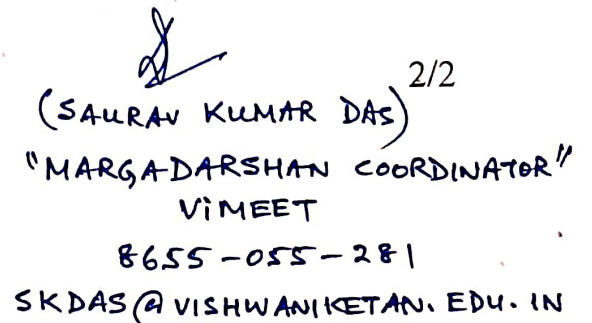 2/2
(SAURAV KUMAR DAS)
"MARGADARSHAN COORDINATOR"
ViMEET
8655-055-281
SKDAS@VISHWANIKETAN.EDU.IN